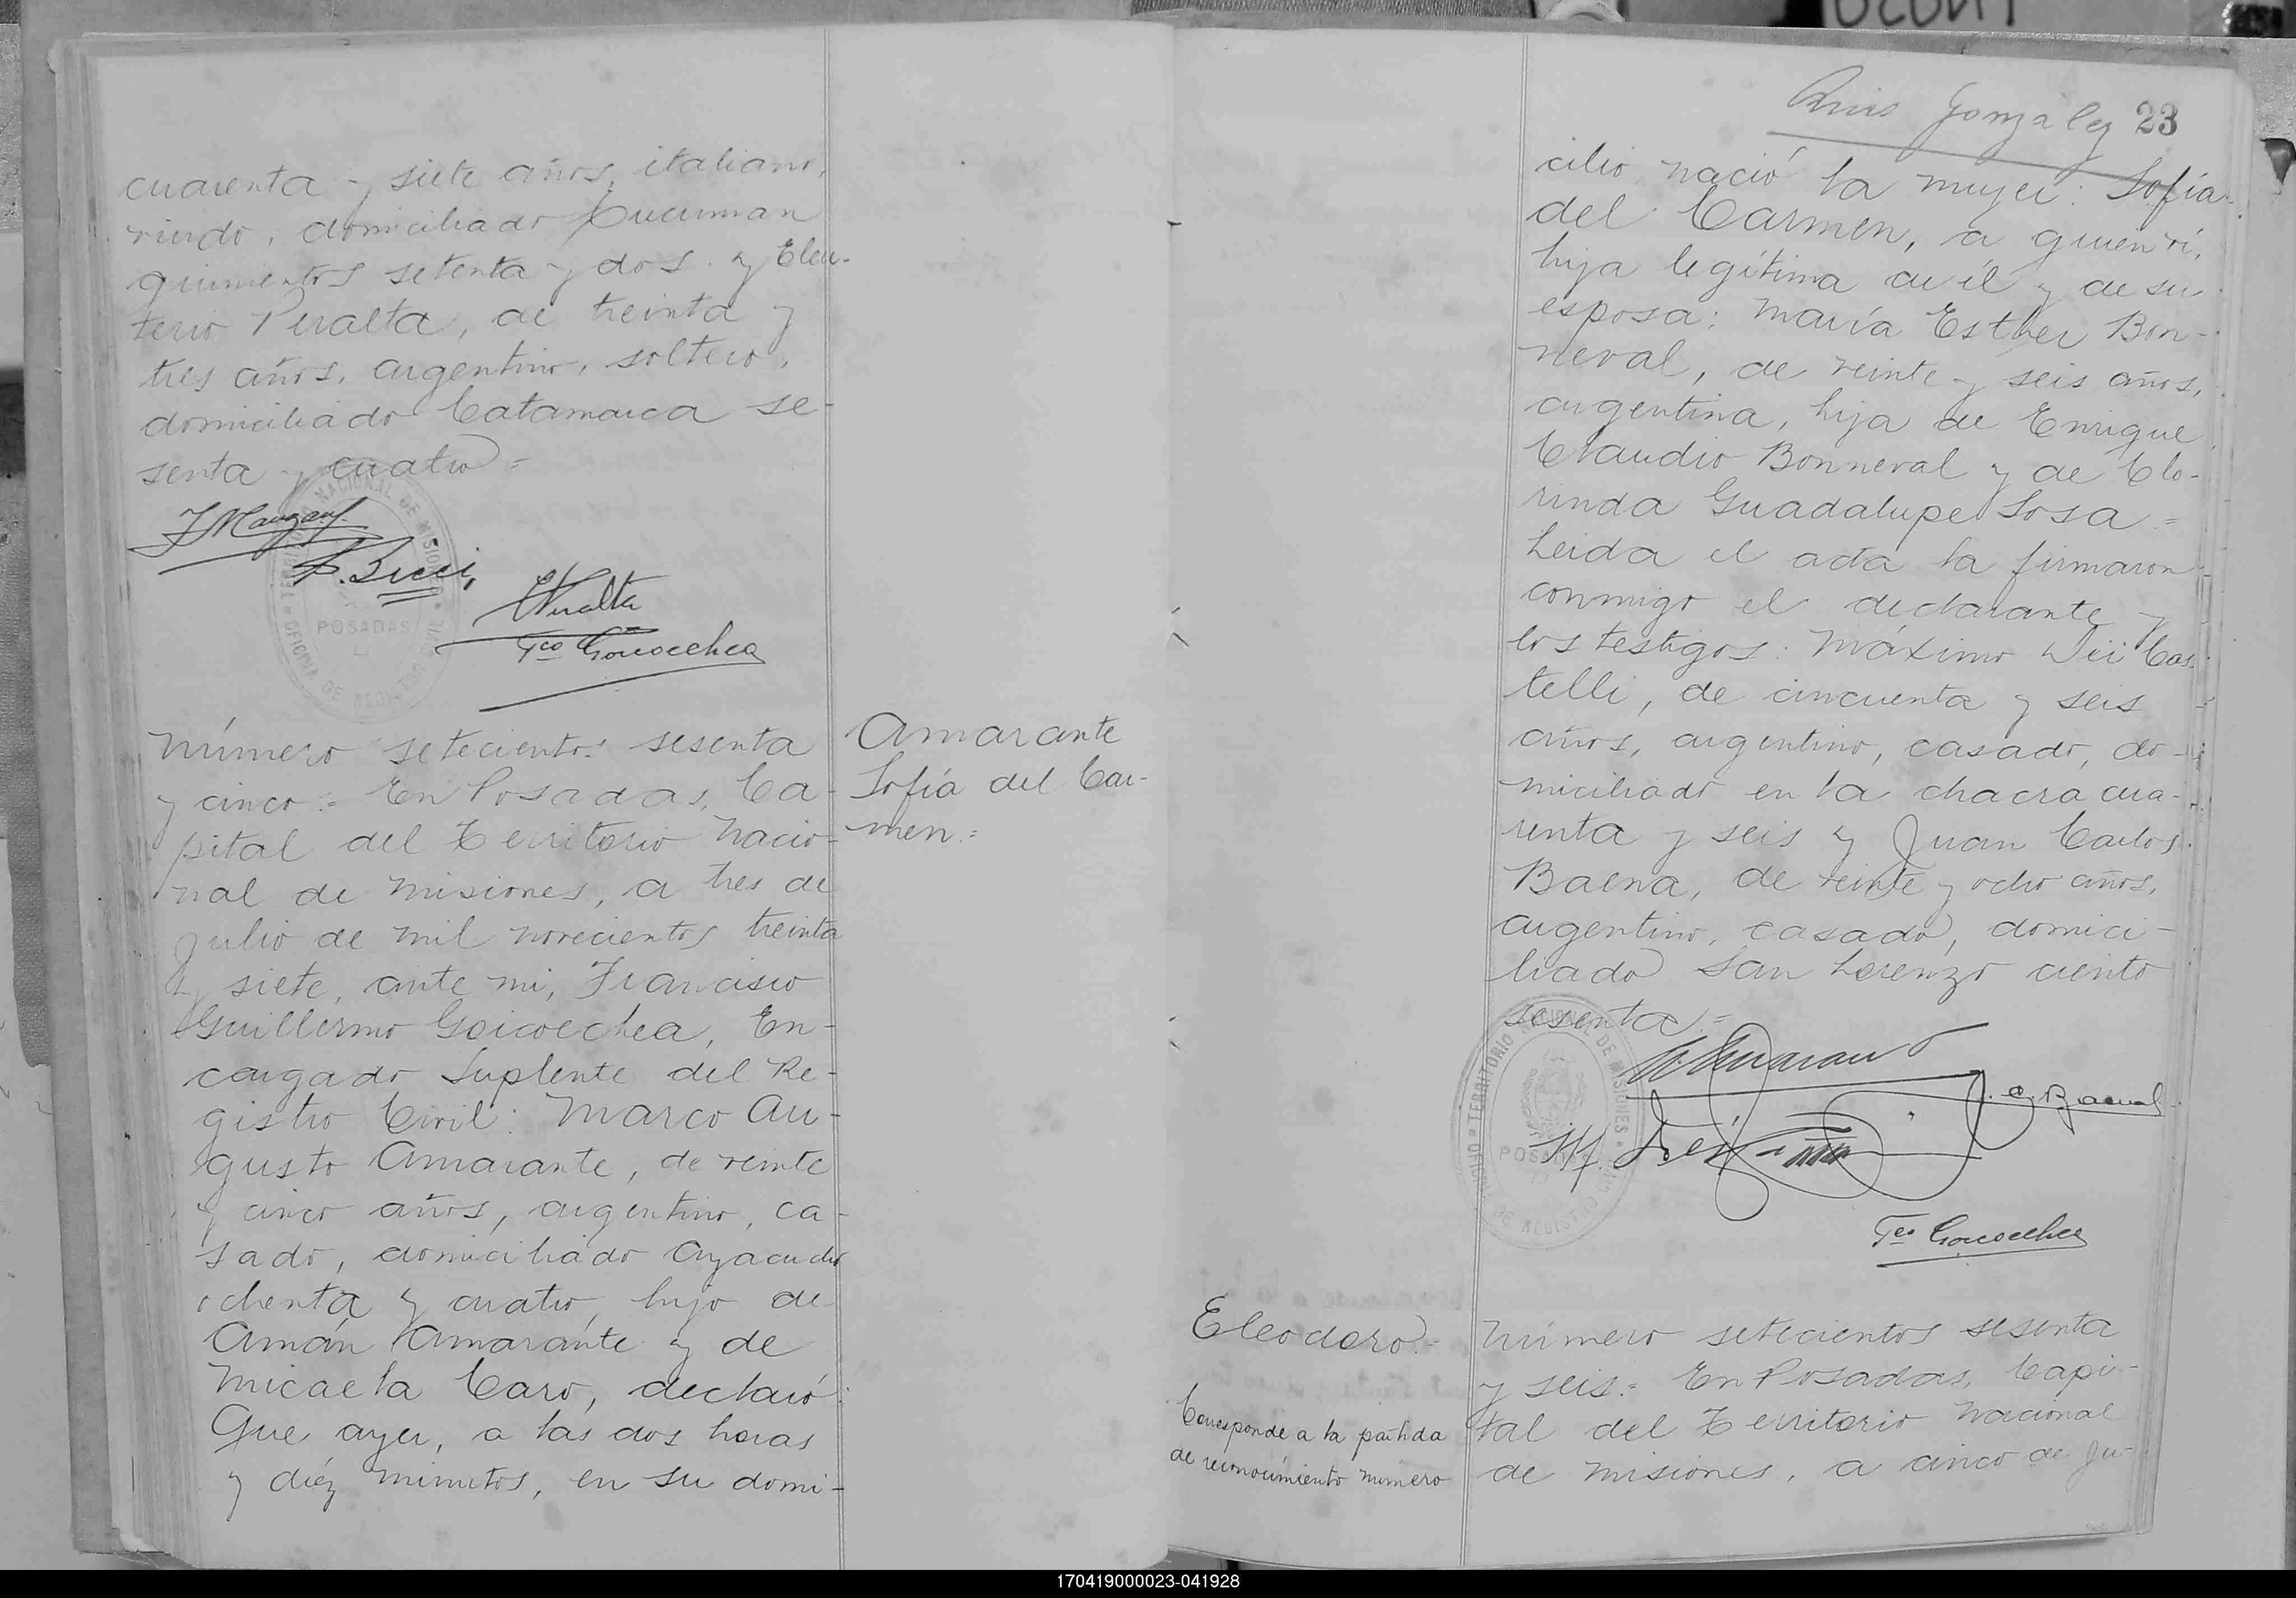 cuarenta y siete años, italiano,
viudo, domiciliado Tucuman
quinientos setenta y dos y Eleu-
terio Peralta, de treinta y
tres años, argentino, soltero,
domiciliado Catamarca se-
senta y cuatro=
TERRITORIO NACIONAL DE MISIONES
POSADAS
OFICINA DE REGISTRO CIVIL
B. Bucci
EPeralta
Fco Goicoechea
Número setecientos sesenta
y cinco:= En Posadas, Ca-
pital del Territorio Nacio-
nal de Misiones, a tres de
Julio de mil novecientos treinta
y siete, ante mi, Francisco
Guillermo Goicoechea, En-
cargado Suplente del Re-
gistro Civil: Marco Au-
gusto Amarante, de veinte
y cinco años, argentino, ca-
sado, domiciliado Ayacucho
ochenta y cuatro, hijo de
Amán Amarante y de
Micaela Caro, declaró:
Que ayer, a las dos horas
y diéz minutos, en su domi-
Amarante
Sofía del Car-
men.=
Luis González 23
cilio nació la mujer: Sofía
del Carmen, a quien ví,
hija legítima de él y de su
esposa: María Esther Bon-
neval, de veinte y seis años,
argentina, hija de Enrique
Claudio Bonneval y de Clo-
rinda Guadalupe Sosa.=
Leida el acta la firmaron
conmigo el declarante y
los testigos: Máximo Dei Cas-
telli, de cincuenta y seis
años, argentino, casado, do-
miciliado en la chacra cua-
renta y seis y Juan Carlos
Baena, de veinte y ocho años,
argentino, casado, domici-
liado San Lorenzo ciento
sesenta.=
TERRITORIO NACIONAL DE MISIONES
POSADAS
OFICINA DE REGISTRO CIVIL
J. C. Baena
Fco Goicoechea
Eleodoro.=
Corresponde a la partida
de reconocimiento número
Número setecientos sesenta
y seis.= En Posadas, Capi-
tal del Territorio Nacional
de Misiones, a cinco de Ju-
170419000023-041928